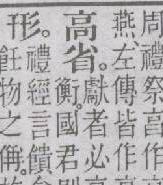 周禮祭
燕左傳皆作
高省。獻者必
衡國君
形。禮經饋
飪物之